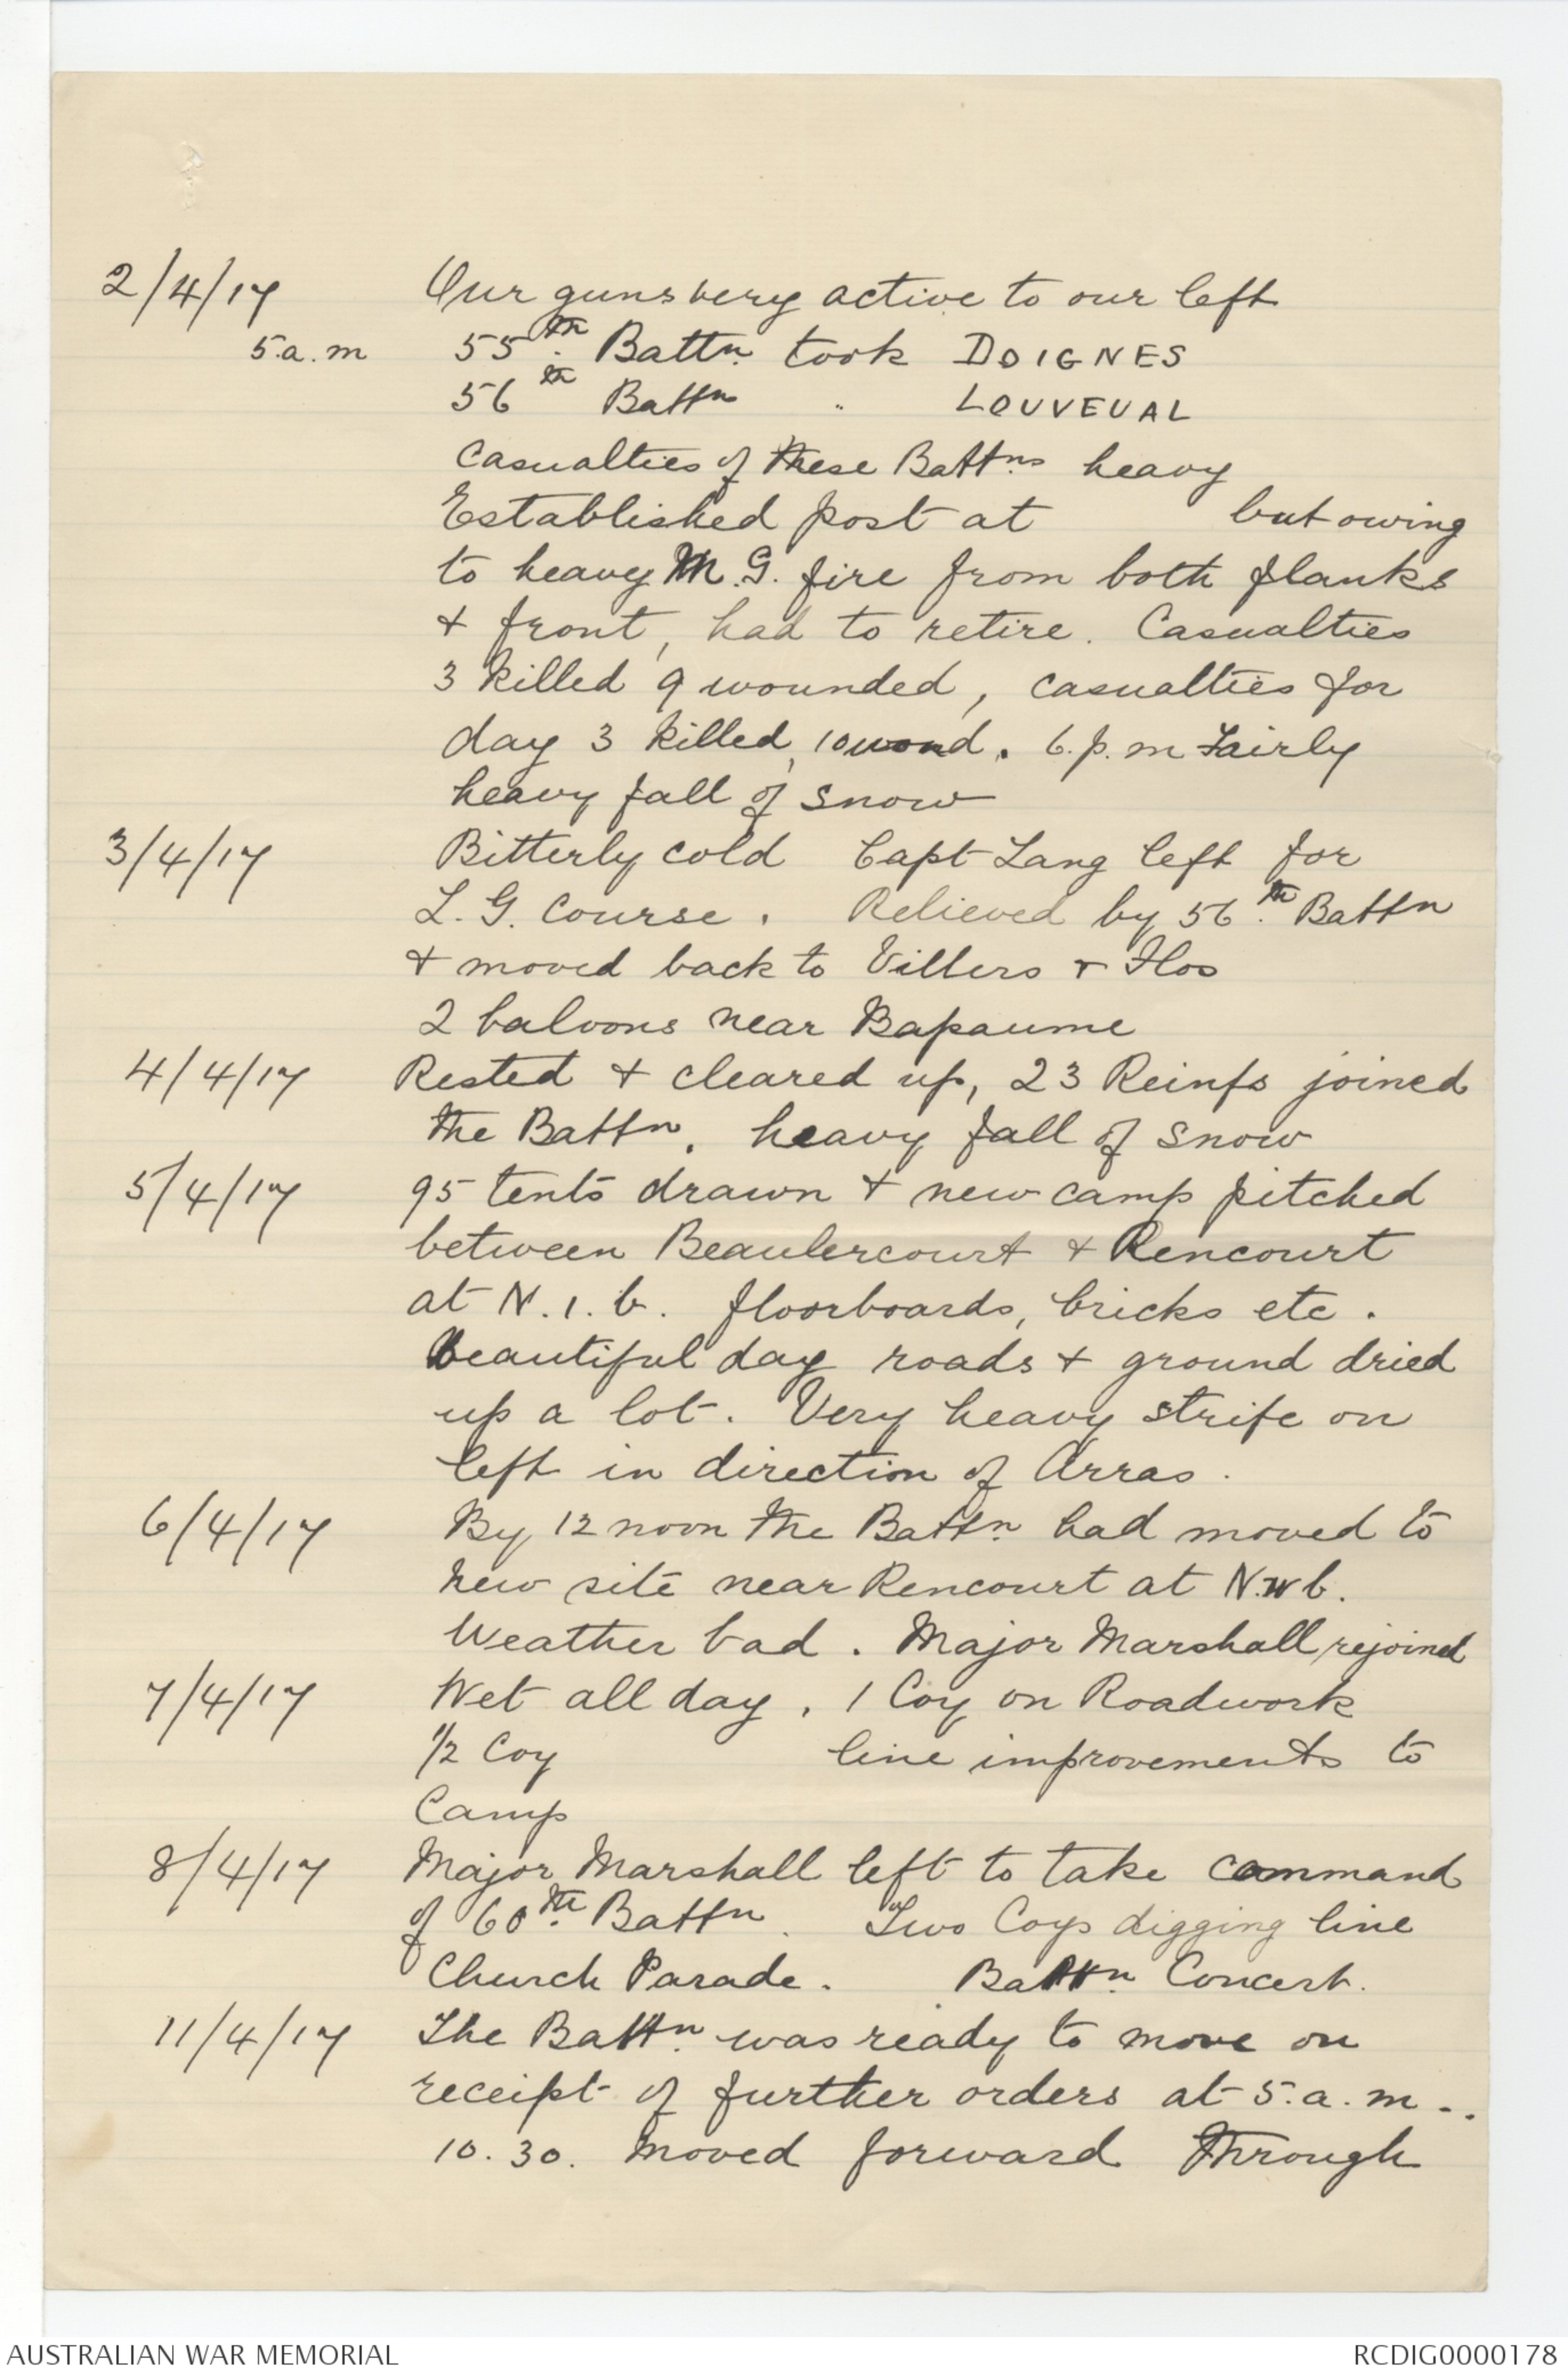 2/4/17 Our guns very active to our left
5.a.m 55th. Battn. took DOIGNES
56th Battn " LOUVEUAL
Casualties of these Battns heavy
Established post at but owing
to heavy M.G. fire from both flanks
& front, had to retire. Casualties
3 killed 9 wounded, casualties for
day 3 killed, 10 wond. 6.p.m Fairly
heavy fall of snow
3/4/17 Bitterly cold Capt Lang left for
L.G. Course. Relieved by 56th. Battn
& moved back to Villers & Flos
2 baloons near Bapaume
4/4/17 Rested & cleared up, 23 Reinfs joined
the Battn. heavy fall of snow
5/4/17 95 tents drawn & new camp pitched
between Beaulercourt & Rencourt
at N.1.b. floorboards, bricks etc.
Beautiful day roads & ground dried
up a lot. Very heavy strife on
left in direction of Arras.
6/4/17 By 12 noon the Battn. had moved to
new site near Rencourt at N. b.
Weather bad. Major Marshall rejoined
7/4/17 Wet all day, 1 Coy on Roadwork
1/2 Coy line improvements to
Camp
8/4/17 Major Marshall left to take command
of 60th. Battn. Two Coys digging line
Church Parade. Battn. Concert.
11/4/17 The Battn. was ready to move on
receipt of further orders at 5.a.m..
10.30. moved forward through
AUSTRALIAN WAR MEMORIAL RCDIG0000178